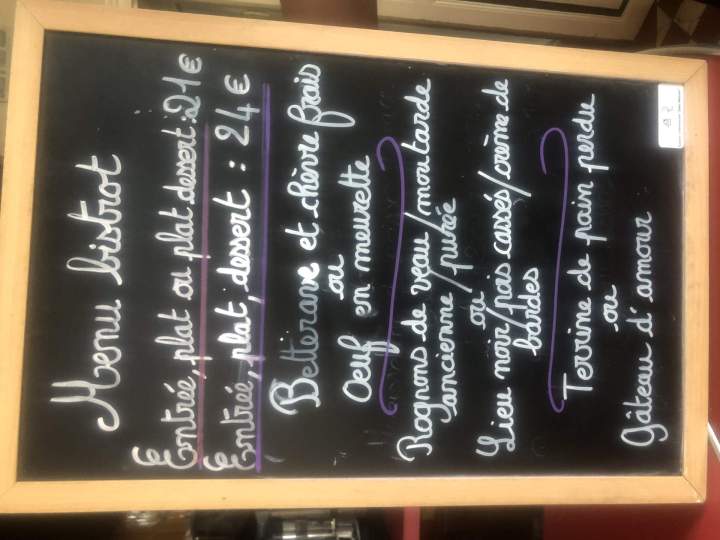 Menu bistrot
Entrée, plat ou plat dessert : 21€
Entrée, plat, dessert : 24€
Betterave et chèvre frais
ou
Oeuf en meurette
Rognons de veau / moutarde
ancienne / purée
ou
Lieu noir / pois cassés / crème de
bardes
Terrine de pain perdu
ou
Gâteau d'amour